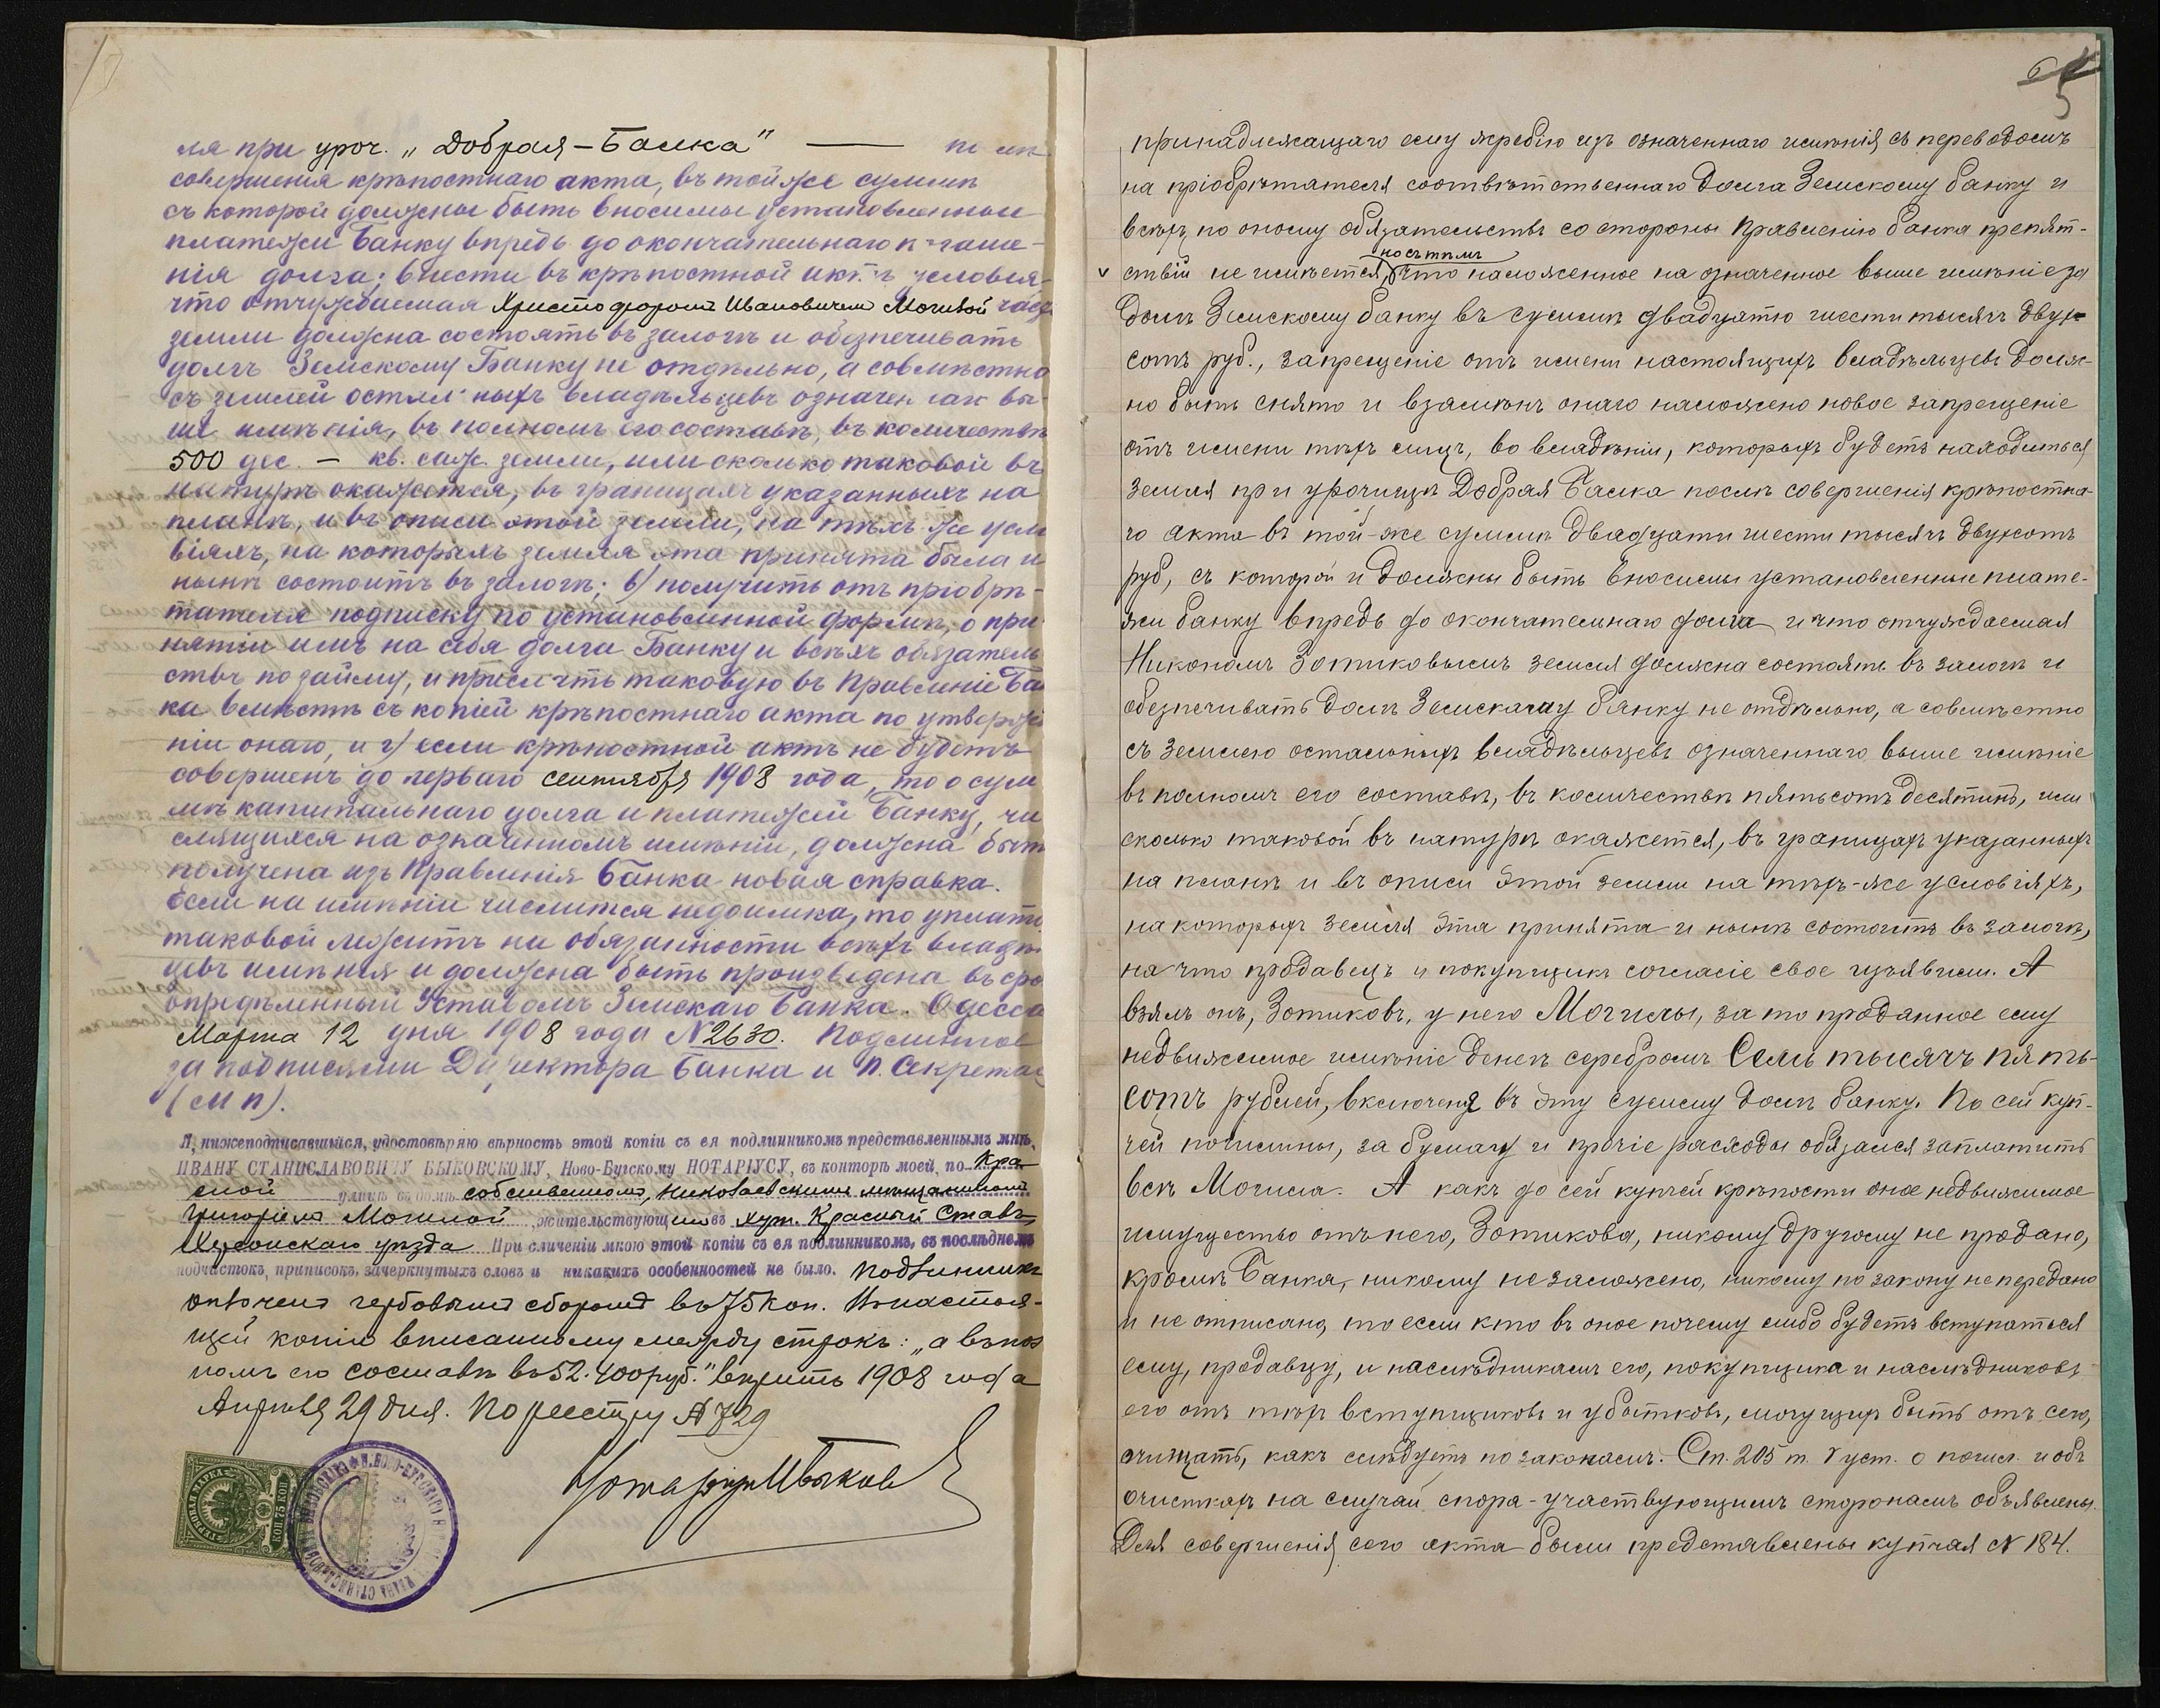 ля при уроч. „Добрая-Балка" — по
совершенiя крѣпостнаго акта, въ той же суммѣ
съ которой должны быть вносимы установленные
платежи Банку впредь до окончательнаго погаше-
нiя долга; внести въ крѣпостной актъ условiя
что отчуждаемая Христофоромъ Ивановичемъ Могилой часть
земли должна состоять въ залогѣ и обезпечивать
долгъ Земскому Банку не отдѣльно, а совмѣстно
съ землей остальныхъ владѣльцевъ означеннаго вы-
ше имѣнiя, въ полномъ его составѣ, въ количествѣ
500 дес. — кв. саж. земли, или сколько таковой въ
натурѣ окажется, въ границахъ указанныхъ на
планѣ, и въ описи этой земли, на тѣхъ же усло
вiяхъ, на которыхъ земля эта принята была и
нынѣ состоитъ въ залогѣ; в) получить отъ прiобрѣ-
тателя подписку по установленной формѣ, о при
нятiи имъ на себя долга Банку и всѣхъ обязатель
ствъ по займу, и прислать таковую въ Правленiе Бан
ка вмѣстѣ съ копiей крѣпостнаго акта по утвержде
нiи онаго, и г) если крѣпостной актъ не будетъ
совершенъ до перваго сентября 1908 года, то о сум
мѣ капитальнаго долга и платежей Банку, чи
слящихся на означенномъ имѣнiи, должна быть
получена изъ Правленiя Банка новая справка.
Если на имѣнiи числится недоимка, то уплата
таковой лежитъ на обязанности всѣхъ владѣль
цевъ имѣнiя и должна быть произведена въ сро
опредѣленный Уставомъ Земскаго Банка. Одесса
Марта 12 дня 1908 года № 2630. Подлинное
за подписями Директора Банка и П. Секретаря
(М п).
Я, нижеподписавшiйся, удостовѣряю вѣрность этой копiи съ ея подлинникомъ представленнымъ мнѣ,
ИВАНУ СТАНИСЛАВОВИЧУ БЫКОВСКОМУ, Ново-Бугскому НОТАРIУСУ, въ конторѣ моей, по Кра
сной улицѣ въ домѣ собственномъ, Николаевскимъ мѣщаниномъ
Григорiемъ Могилой, жительствующимъ въ хут. Красный Ставъ,
Херсонскаго уѣзда. При сличенiи мною этой копiи съ ея подлинникомъ, въ послѣднемъ
подчистокъ, приписокъ, зачеркнутыхъ словъ и никакихъ особенностей не было. Подлинникъ
оплоченъ гербовымъ сборомъ въ 75 коп. Въ настоя-
щей копiи вписанному между строкъ: „а въ пол
номъ его составѣ въ 52.400 руб." вѣрить 1908 года
Апрѣля 29 дня. По реестру № 729
Нотарiусъ И Быков
ГЕРБОВАЯ МАРКА
75 КОП
5
принадлежащаго ему жребiю изъ означеннаго имѣнiя съ переводомъ
на прiобрѣтателя соотвѣтственнаго долга Земскому банку и
всѣхъ по оному обязательствъ со стороны Правленiю банка препят-
но съ тѣмъ
v ствiй не имѣется, что наложенное на означенное выше имѣнiе за
долгъ Земскому банку въ суммѣ двадцатю шести тысячъ двух-
сотъ руб., запрещенiе отъ имени настоящихъ владѣльцевъ долж-
но быть снято и взамѣнъ онаго наложено новое запрещенiе
отъ имени тѣхъ лицъ, во владѣнiи, которыхъ будетъ находиться
земля при урочищѣ Добрая Балка послѣ совершенiя крѣпостна-
го акта въ той-же суммѣ двадцати шести тысячъ двухсотъ
руб, съ которой и должны быть вносимы установленные плате-
жи банку впредь до окончательнаго долга и что отчуждаемая
Никономъ Зотиковымъ земля должна состоять въ залогѣ и
обезпечивать долгъ Земскому банку не отдѣльно, а совмѣстно
съ землею остальныхъ владѣльцевъ означеннаго выше имѣнiе
въ полномъ его составѣ, въ количествѣ пятьсотъ десятинъ, или
сколько таковой въ натурѣ окажется, въ границахъ указанныхъ
на планѣ и въ описи этой земли на тѣхъ-же условiяхъ,
на которыхъ земля эта принята и нынѣ состоитъ въ залогѣ,
на что продавецъ и покупщикъ согласiе свое изъявили. А
взялъ онъ, Зотиковъ, у него Могилы, за то проданное ему
недвижимое имѣнiе денегъ серебромъ Семь тысячъ пять-
сотъ рублей, включеня въ эту сумму долгъ банку. По сей куп-
чей пошлины, за бумагу и прочiе расходы обязался заплатить
всѣ Могила. А какъ до сей купчей крѣпости оное недвижимое
имущество отъ него, Зотикова, никому другому не продано,
кромѣ Банка, никому не заложено, никому по закону не передано
и не отписано, то если кто въ оное почему либо будетъ вступаться
ему, продавцу, и наслѣдникамъ его, покупщика и наслѣдниковъ
его отъ тѣхъ вступщиковъ и убытковъ, могущихъ быть отъ сего,
очищать, какъ слѣдуетъ по законамъ. Ст. 205 т. V уст. о пошл. и объ
очисткахъ на случай спора - участвующимъ сторонамъ объявлены.
Для совершенiя сего акта были представлены купчая № 184.